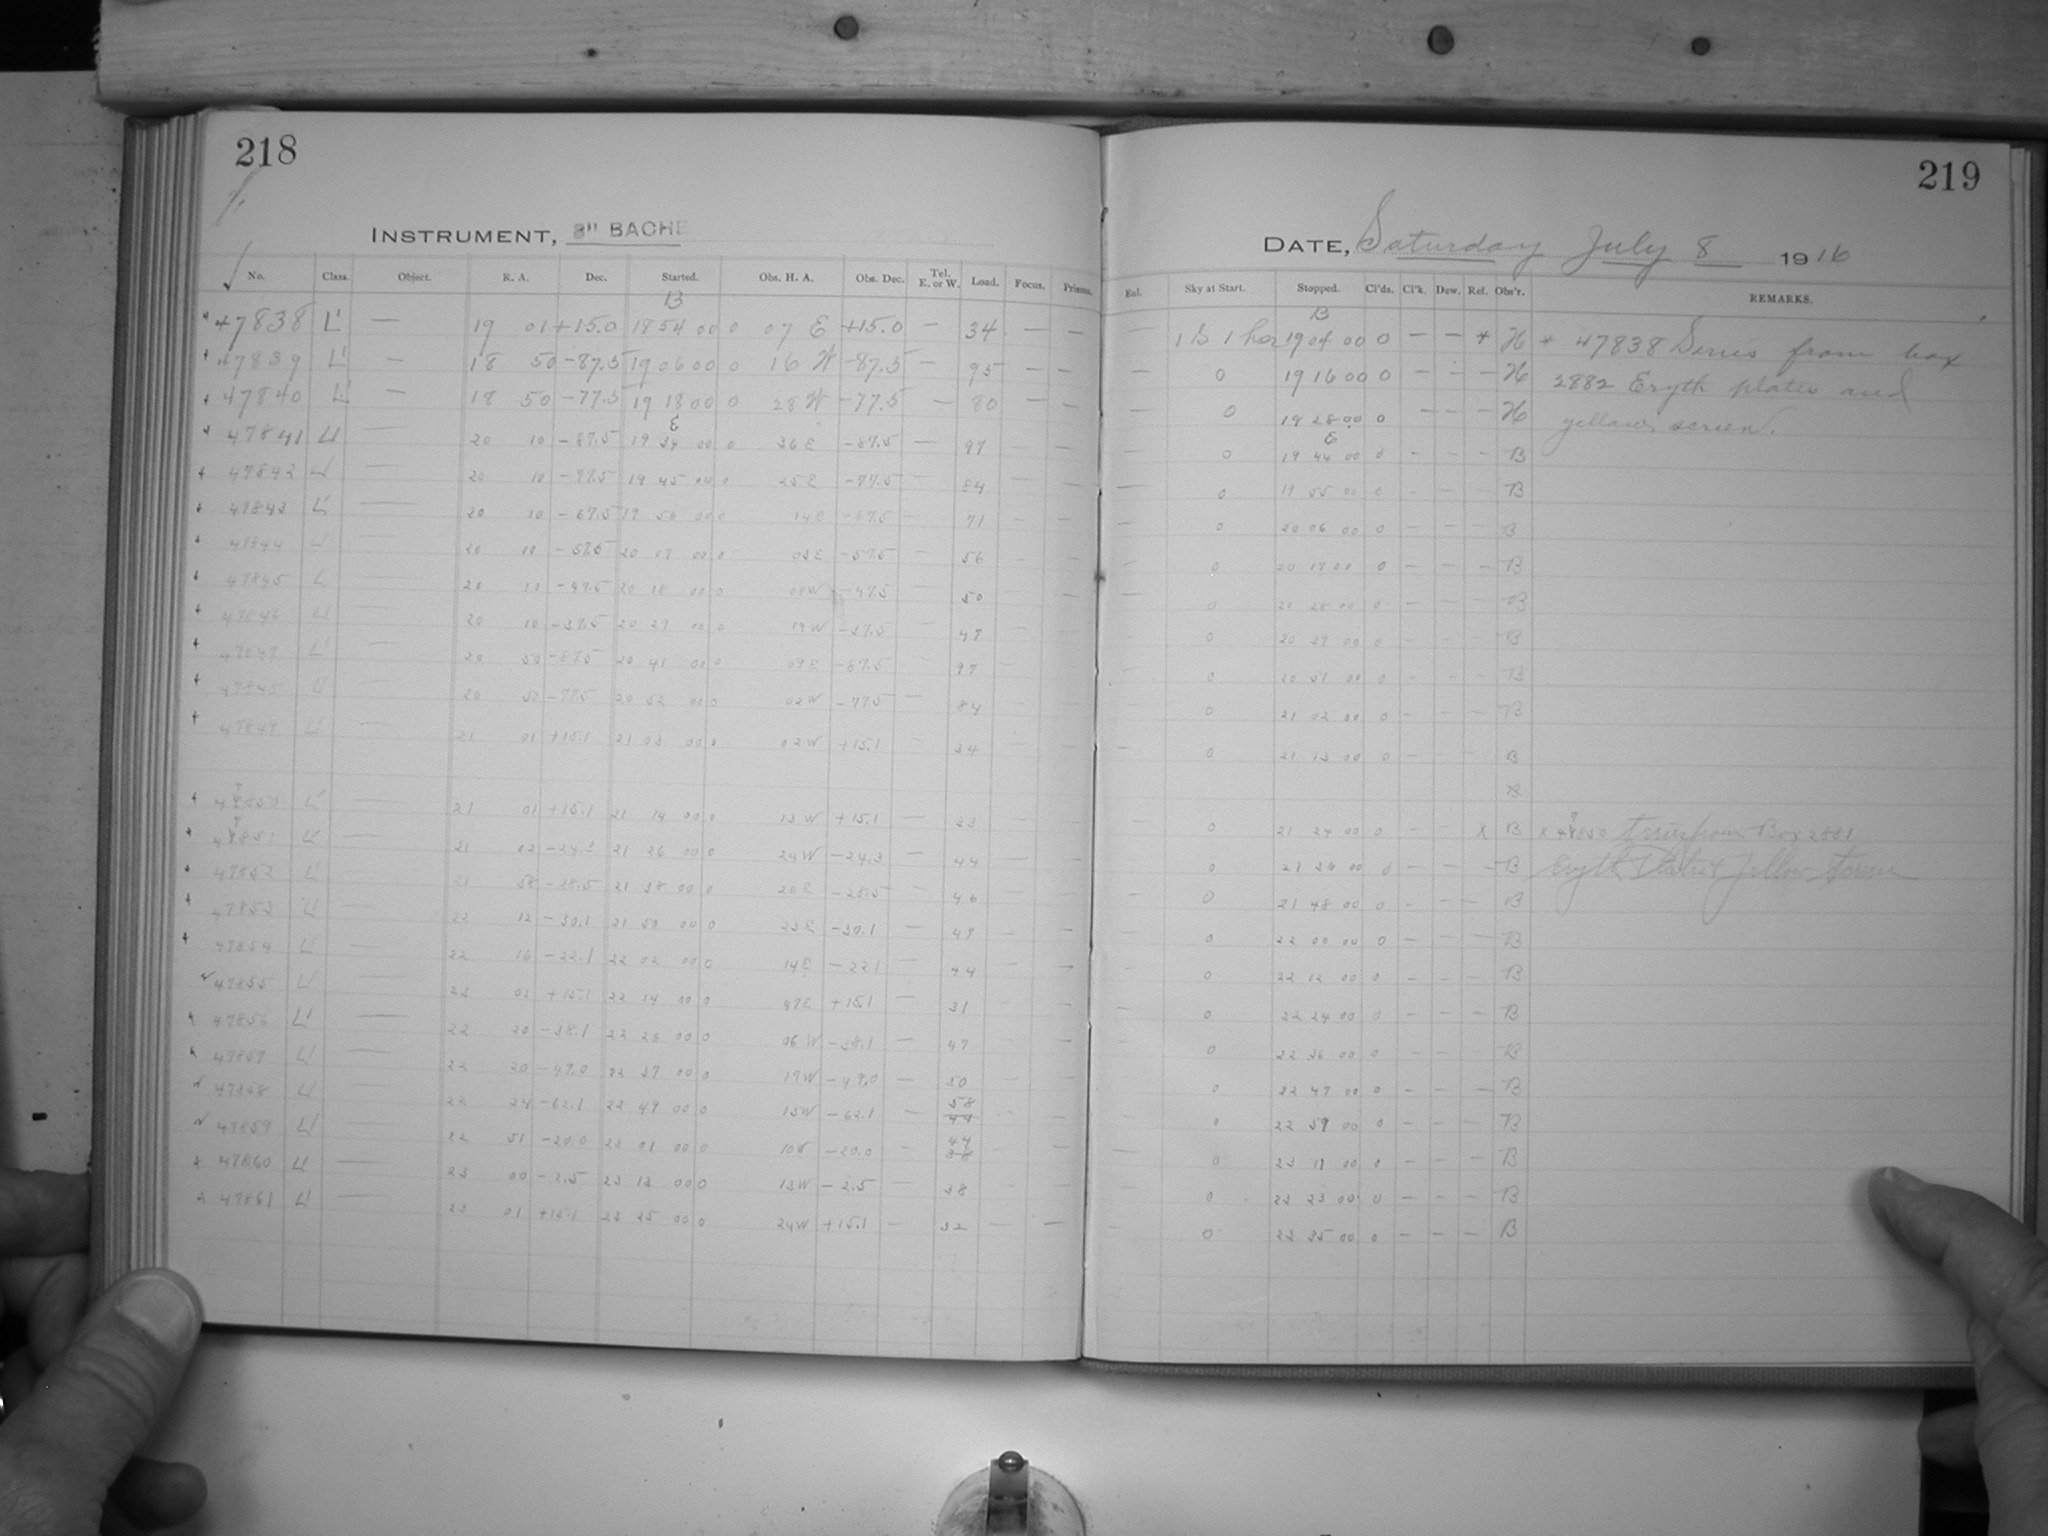 218
INSTRUMENT, 8" BACHE
No. Class. Object. R. A. Dec. Started. Obs. H. A. Obs. Dec. Tel. E. or W. Load. Focus. Prisms.
B
47838 L' — 19 01 +15.0 18 54 00 0 07 E +15.0 — 34 — —
47839 L' — 18 50 -87.5 19 06 00 0 16 W -87.5 — 95 — —
47840 L' — 18 50 -77.5 19 18 00 0 28 W -77.5 — 80 — —
E
47841 L' — 20 10 -87.5 19 34 00 0 36 E -87.5 — 97
47842 L' — 20 10 -77.5 19 45 00 0 25 E -77.5 — 84 — —
47843 L' — 20 10 -67.5 19 56 00 0 14 E -67.5 — 71 — —
47844 L' — 20 10 -57.5 20 07 00 0 03 E -57.5 — 56 — —
47845 L' — 20 10 -47.5 20 18 00 0 08 W -47.5 — 50 — —
47846 L' — 20 10 -37.5 20 29 00 0 19 W -37.5 — 47 — —
47847 L' — 20 50 -87.5 20 41 00 0 09 E -87.5 — 97 —
47848 L' — 20 50 -77.5 20 52 00 0 02 W -77.5 — 84 — —
47849 L' — 21 01 +15.1 21 03 00 0 02 W +15.1 — 34 — —
47850 L' — 21 01 +15.1 21 14 00 0 13 W +15.1 — 33 — —
47851 L' — 21 02 -24.3 21 26 00 0 24 W -24.3 — 44 — —
47852 L' — 21 58 -28.5 21 38 00 0 20 E -28.5 — 46 — —
47853 L' — 22 12 -30.1 21 50 00 0 23 E -30.1 — 47 — —
47854 L' — 22 16 -22.1 22 02 00 0 14 E -22.1 — 44 — —
47855 L' — 23 01 +15.1 22 14 00 0 47 E +15.1 — 31 — —
47856 L' — 22 20 -38.1 22 26 00 0 06 W -38.1 — 47 — —
47857 L' — 22 20 -49.0 22 37 00 0 17 W -49.0 — 50 — —
58
47858 L' — 22 24 -62.1 22 49 00 0 13 W -62.1 — 44
44
47859 L' — 22 51 -20.0 23 01 00 0 10 W -20.0 — 38 — —
47860 L' — 23 00 -2.5 23 13 00 0 13 W -2.5 — 38 — —
47861 L' — 23 01 +15.1 23 25 00 0 24 W +15.1 — 32 — —
219
DATE, Saturday July 8 1916
Ent. Sky at Start. Stopped. Cl'ds. Cl'k. Dew. Ref. Obs'r. REMARKS.
B
— 19 04 00 0 — — * H * 47838 Series from box
— 0 19 16 00 0 — — — H 2882 Eryth plates and
— 0 19 28 00 0 — — — H yellow screen.
E
— 0 19 44 00 0 — — — B
— 0 19 55 00 0 — — — B
— 0 20 06 00 0 — — — B
— 0 20 17 00 0 — — — B
— 0 20 28 00 0 — — — B
— 0 20 39 00 0 — — — B
— 0 20 51 00 0 — — — B
— 0 21 02 00 0 — — — B
— 0 21 13 00 0 — — — B
B
— 0 21 24 00 0 — — x B x 47850 Series from Box 2881
— 0 21 36 00 0 — — — B Eryth Plates & Yellow Screen
— 0 21 48 00 0 — — — B
— 0 22 00 00 0 — — — B
— 0 22 12 00 0 — — — B
— 0 22 24 00 0 — — — B
— 0 22 36 00 0 — — — B
— 0 22 47 00 0 — — — B
— 0 22 59 00 0 — — — B
— 0 23 11 00 0 — — — B
— 0 23 23 00 0 — — — B
— 0 23 35 00 0 — — — B